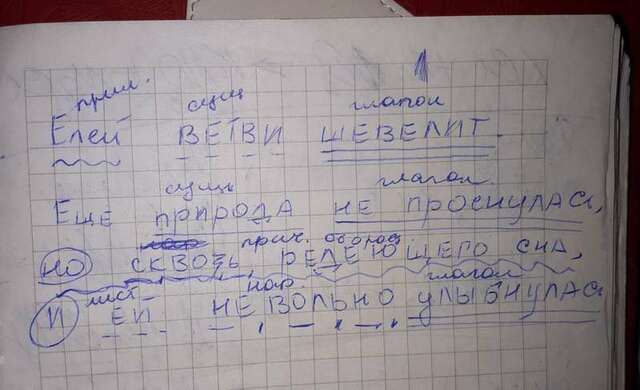 1
прил. сущ глагол
ЕЛЕЙ ВЕТВИ ШЕВЕЛИТ
сущь глагол
ЕЩЕ ПРИРОДА НЕ ПРОСНУЛАСЬ,
прич. оборот
НО СКВОЗЬ РЕДЕЮЩЕГО СНА,
мест нар. глагол
И ЕЙ НЕВОЛЬНО УЛЫБНУЛАСЬ